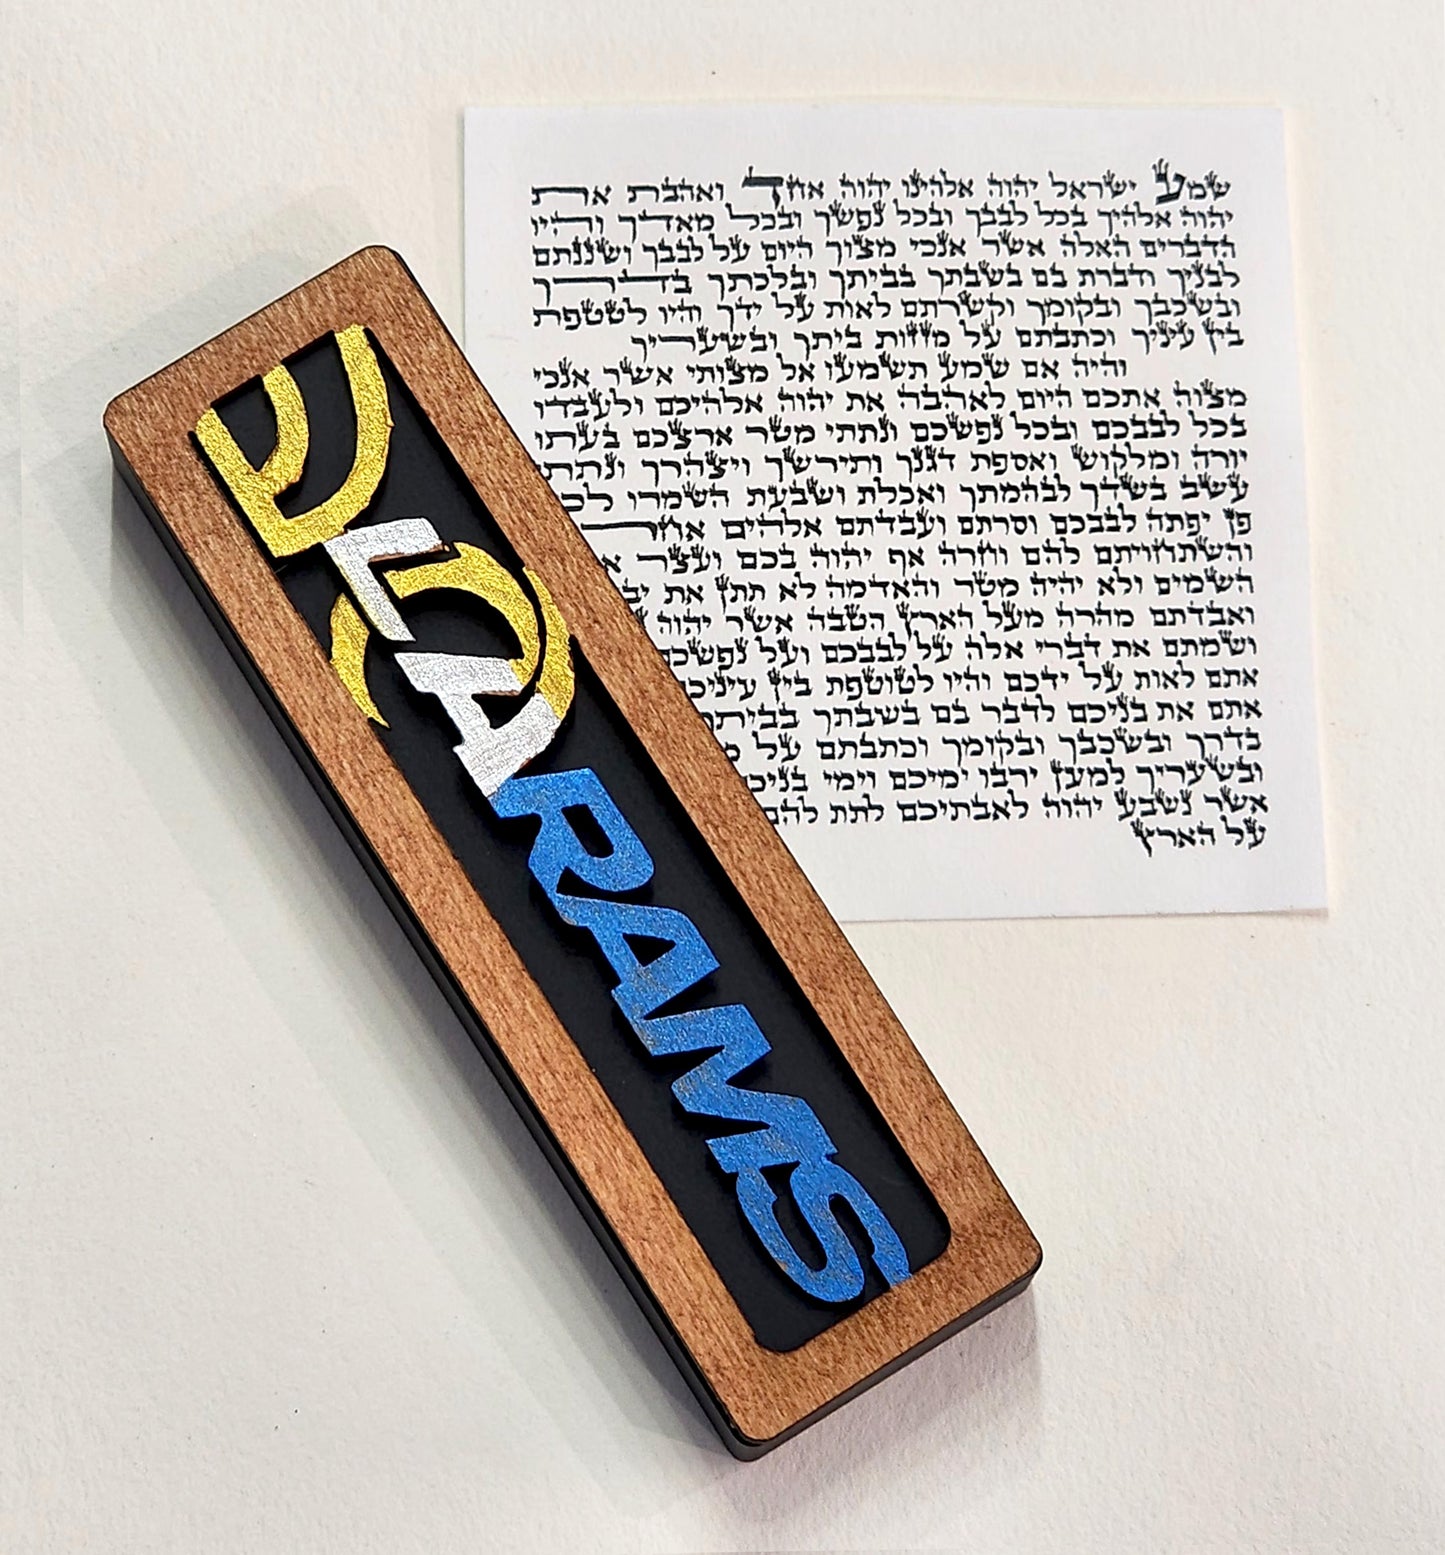 ש
LA
RAMS
שמע ישראל יהוה אלהינו יהוה אחד ואהבת את
יהוה אלהיך בכל לבבך ובכל נפשך ובכל מאדך והיו
הדברים האלה אשר אנכי מצוך היום על לבבך ושננתם
לבניך ודברת בם בשבתך בביתך ובלכתך בדרך
ובשכבך ובקומך וקשרתם לאות על ידך והיו לטטפת
בין עיניך וכתבתם על מזזות ביתך ובשעריך
והיה אם שמע תשמעו אל מצותי אשר אנכי
מצוה אתכם היום לאהבה את יהוה אלהיכם ולעבדו
בכל לבבכם ובכל נפשכם ונתתי מטר ארצכם בעתו
יורה ומלקוש ואספת דגנך ותירשך ויצהרך ונתתי
עשב בשדך לבהמתך ואכלת ושבעת השמרו
פן יפתה לבבכם וסרתם ועבדתם אלהים
והשתחויתם להם וחרה אף יהוה בכם ועצר
השמים ולא יהיה מטר והאדמה לא תתן את
ואבדתם מהרה מעל הארץ הטבה אשר יהוה
ושמתם את דברי אלה על לבבכם ועל נפשכם
אתם לאות על ידכם והיו לטוטפת בין עיניכם
אתם את בניכם לדבר בם בשבתך בביתך
בדרך ובשכבך ובקומך וכתבתם על
ובשעריך למען ירבו ימיכם וימי בניכם
אשר נשבע יהוה לאבתיכם לתת להם
על הארץ